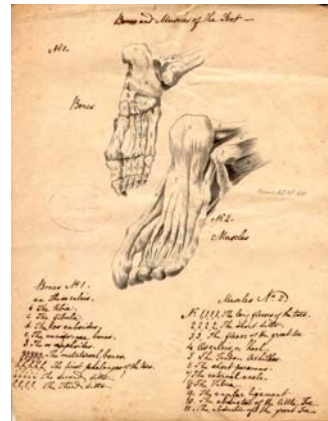 Bones and Muscles of the Foot
No 1.
Bones
No 2.
Muscles
Bones No 1.
aa Os calcis.
b The tibia.
c The fibula.
The cuneiforme bones.
The metatarsal bones.
The first phalanges of the toes.
The second ditto.
The third ditto.
Muscles No 2.
No 1,1,1,1, The long flexors of the toes.
2,2,2,2, The short ditto.
3,3. The flexor of the great toe
4 Os calcis, or heel.
5 The Tendon Achilles
6 The short
7 The external ancle.
8 The Tibia
9. The angular ligament
10. The abductor of the little Toe
11. The abductor of the great Toe.